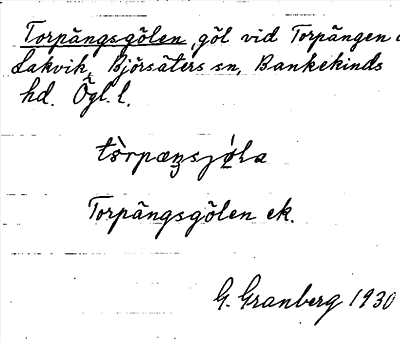 Torpängsgölen, göl vid Torpängen
Lakvik, Björsäters sn, Bankekinds
hd. Ögl. l.
Torpängsgölen ek.
G. Granberg 1930